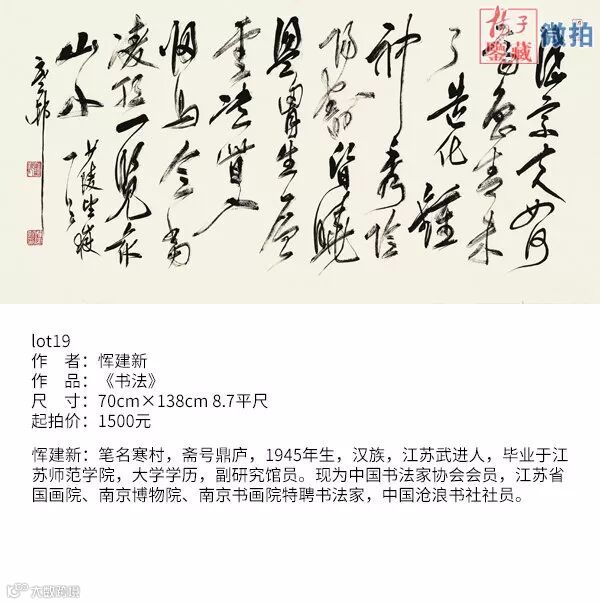 梅子
鑒藏
微拍
岱宗夫如何
齊魯青未
了造化鍾
神秀陰
陽割昏曉
盪胸生層
雲決眥入
歸鳥會當
凌頂一覽众
山小 少陵望嶽
寒村
lot19
作 者：恽建新
作 品：《书法》
尺 寸：70cm×138cm 8.7平尺
起拍价：1500元
恽建新：笔名寒村，斋号鼎庐，1945年生，汉族，江苏武进人，毕业于江
苏师范学院，大学学历，副研究馆员。现为中国书法家协会会员，江苏省
国画院、南京博物院、南京书画院特聘书法家，中国沧浪书社社员。
大数跨境